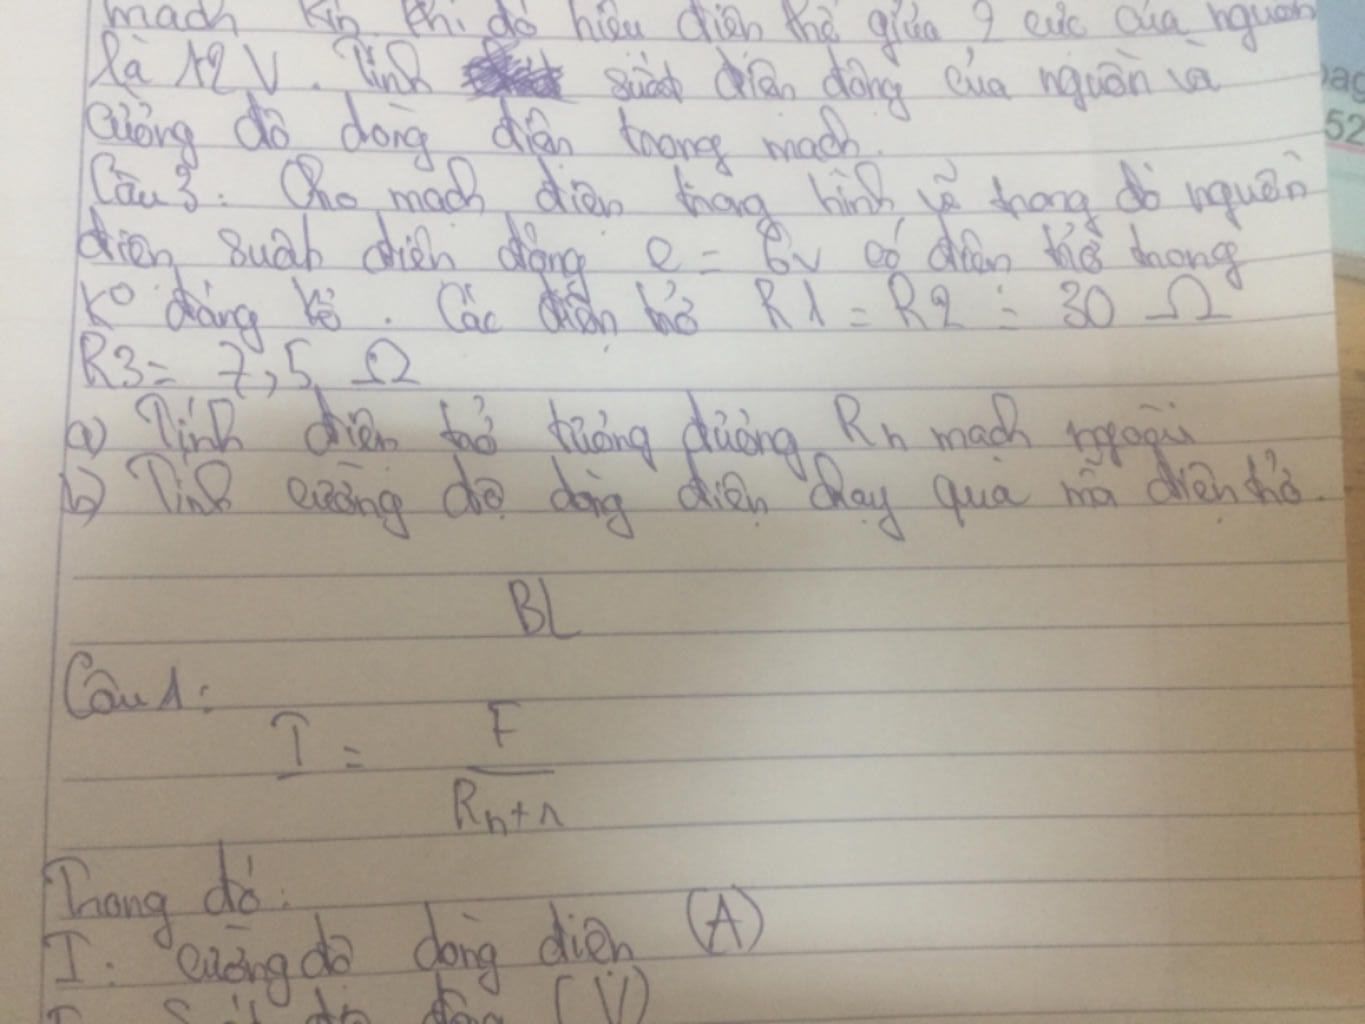 mạch kín thì đó hiệu điện thế giữa 2 cực của nguồn
là 12 V. Tính suất điện động của nguồn và
cường độ dòng điện trong mạch.
Câu 3: Cho mạch điện trong hình vẽ trong đó nguồn
điện suất điện động e = 6v có điện trở trong
ko đáng kể. Các điện trở R1 = R2 = 30 Ω
R3= 7,5 Ω
a) Tính điện trở tương đương Rn mạch ngoài
b) Tính cường độ dòng điện chạy qua mỗi điện trở.
BL
Câu 1:
I = E / Rn+r
Trong đó:
I: cường độ dòng điện (A)
(V)
ag
52